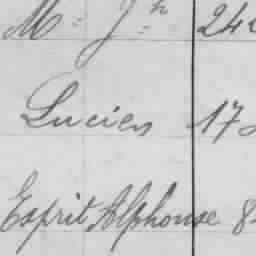 M= J=h 24
Lucien 17
Esprit Alphonse 8